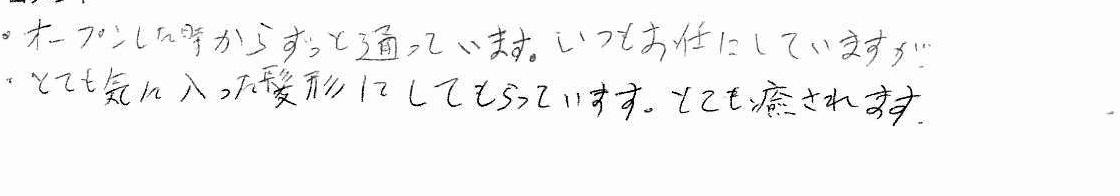 ・オープンした時からずっと通っています。いつもお任にしていますが
・とても気に入った髪形にしてもらっています。とても癒されます.